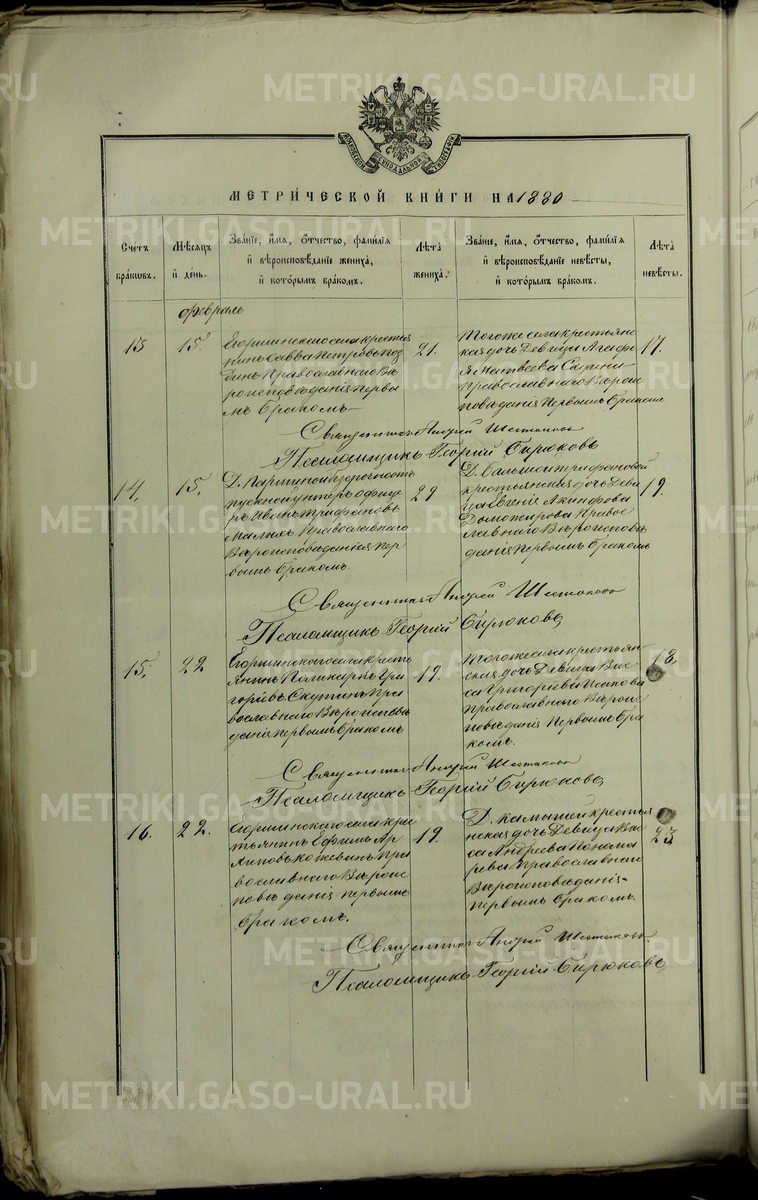 МЕТРИЧЕСКОЙ КНИГИ НА 1880
Счетъ браковъ.
Мѣсяцъ и день.
Званіе, имя, отчество, фамилія и вѣроисповѣданіе жениха, и которымъ бракомъ.
Лѣта жениха.
Званіе, имя, отчество, фамилія и вѣроисповѣданіе невѣсты, и которымъ бракомъ.
Лѣта невѣсты.
Февраль
13
15.
Егоршинскаго села крестья
нинъ Савва Петровъ
Православнаго Вѣ
роисповѣданія Первы
мъ бракомъ
21.
Тогоже села крестьян
ская дочь Девица Агафи
я Матвеева
православнаго Вѣрои
повѣданія Первымъ бракомъ
17.
Священникъ Андрей Шестаковъ
Псаломщикъ Георгій Бирюковъ
14,
15,
Д.
пускной унтеръ офице
ръ Иванъ Трифановъ
Малыхъ Православнаго
Вѣроисповѣданія пер
вымъ бракомъ.
29
Д.
крестьянская дочь Деви
ца Евгенія Акинфова
Доможирова Право
славнаго Вѣроисповѣ
данія Первымъ бракомъ
19.
Священникъ Андрей Шестаковъ
Псаломщикъ Георгій Бирюковъ
15,
22
Егоршинскаго села кресть
янинъ Поликарпъ Гри
горьевъ Скутинъ Пра
вославнаго Вѣроисповѣ
данія первымъ бракомъ
19.
Тогоже села крестьян
ская дочь Девица Вас
са Григорьева
Православнаго Вѣроис
повѣданія Первымъ бра
комъ.
18,
Священникъ Андрей Шестаковъ
Псаломщикъ Георгій Бирюковъ
16.
22.
Егоршинскаго села кре
стьянинъ Ефимъ Ар
хиповъ Кожевинъ пра
вославнаго Вѣроис
повѣданія первымъ
бракомъ.
19.
Д. камышей крестья
нская дочь Девица Вас
са Андреева Понама
рева Православнаго
Вѣроисповѣданія
первымъ бракомъ.
23
Священникъ Андрей Шестаковъ.
Псаломщикъ Георгій Бирюковъ
METRIKI.GASO-URAL.RU